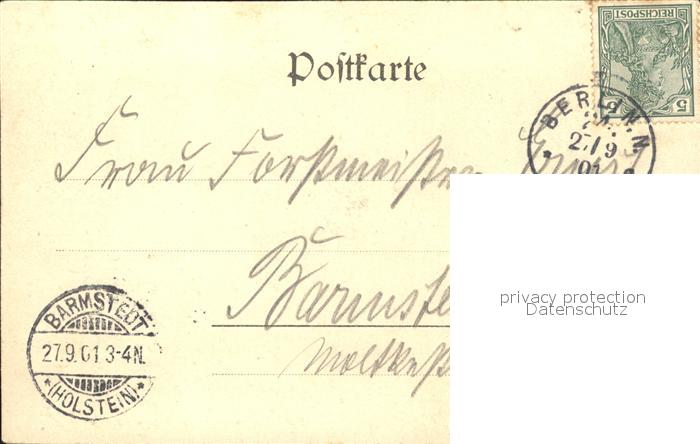 REICHSPOST
5 5
Postkarte
BERLIN. N.
27/9
01
Frau Forstmeister
Barmste
privacy protection
Datenschutz
BARMSTEDT
27.9.01 3-4N.
*(HOLSTEIN)*
Moltkest